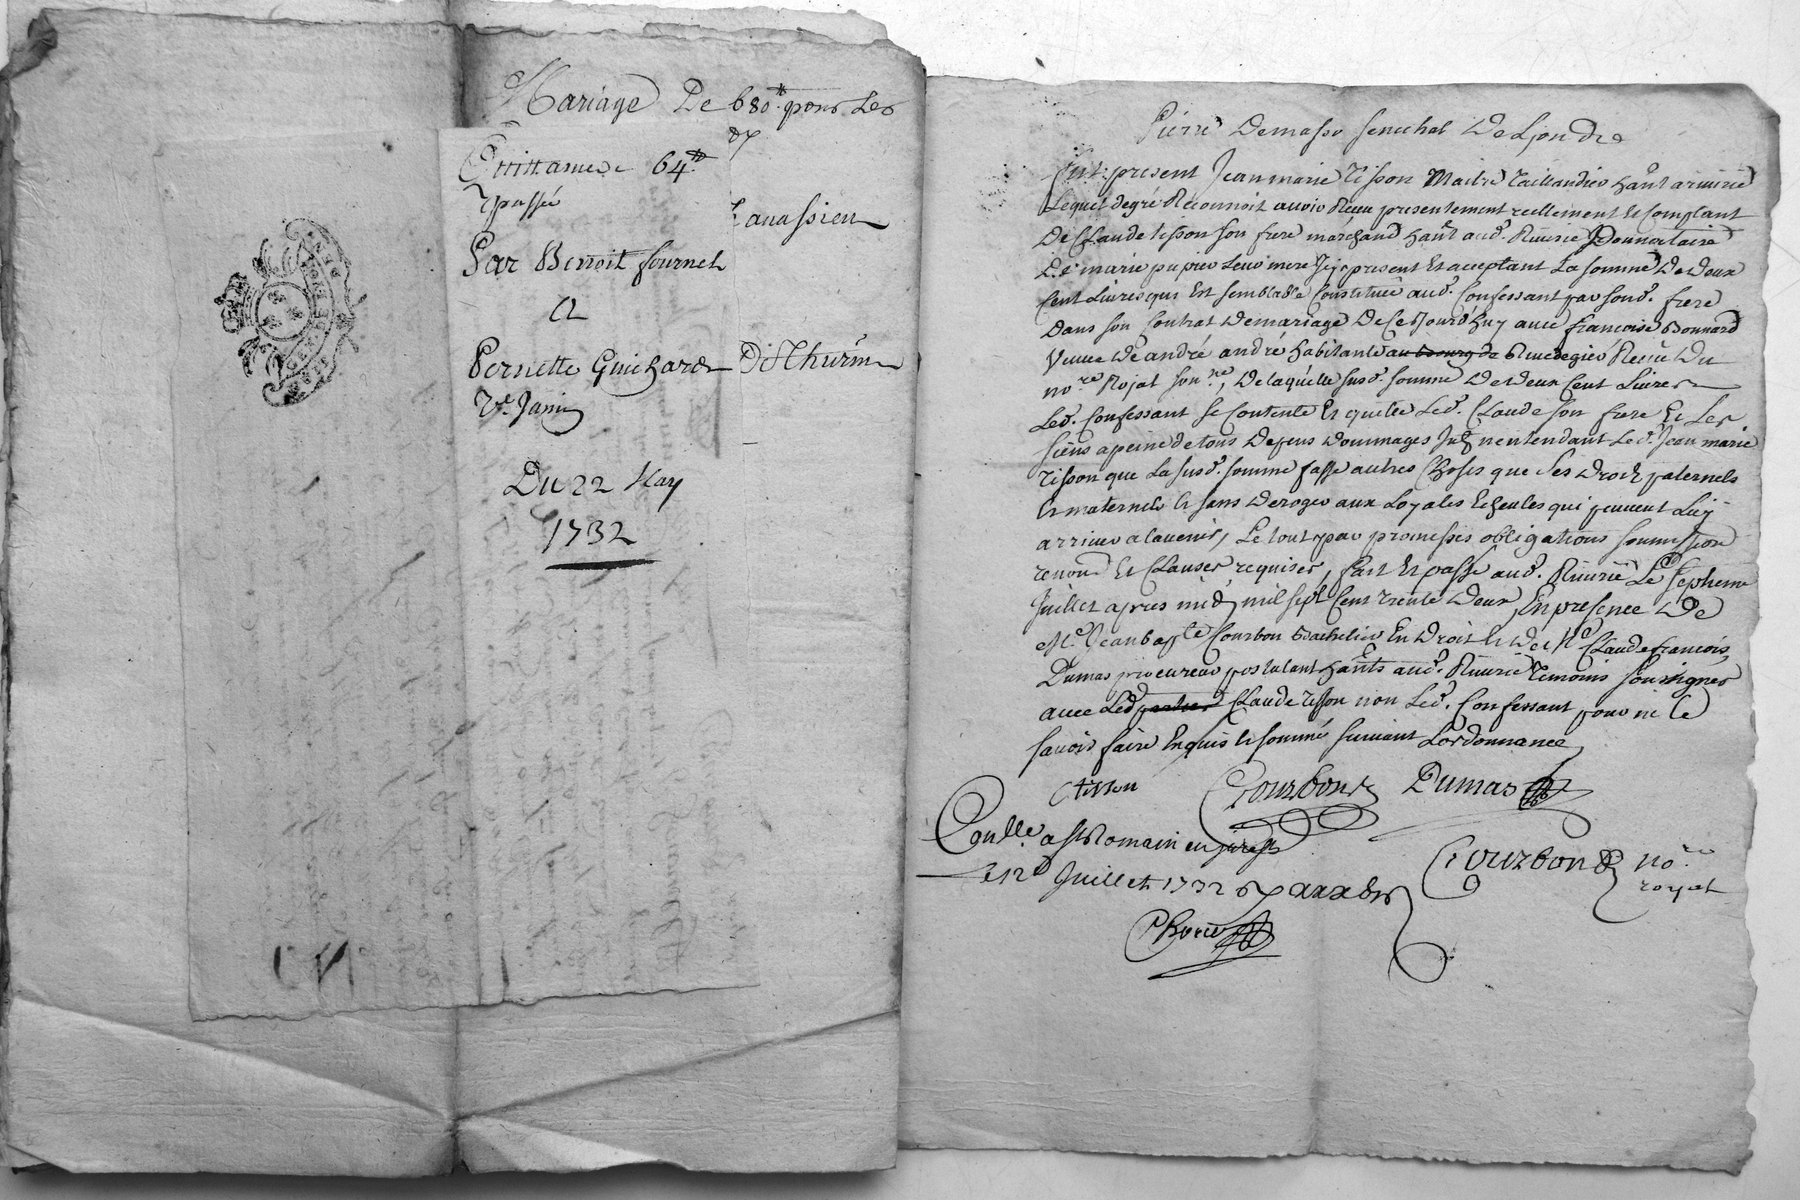 Mariage De 680tt pour Les
Quittance De 64tt
passée
Par Benoit fournel
A
Pernette Guichard
Ve. Janin
Du 22 May
1732
anassieu
D'Ethurin
Pierre Demasso senechal De Lyon &c
fut present Jean marie tisson Maitre taillandier hant a riverie
Lequel degré Reconnoit avoir Receu presentement reellement et Comptant
De Claude tisson son frere marchand hant aud. Riverie Donnataire
De marie pupier Leur mere Icy present Et acceptant La somme De deux
Cent Livres qui Est semblable Constituée aud. Confessant par sond. frere
Dans son Contrat De mariage De Ce Jourdhuy avec francoise Bonnard
Veuve De andré andré habitante au bourg de Rivedegier Receu Du
nore. Rojat son ne, De laquelle susd. somme De Deux Cent Livres
Led. Confessant se Contente Et quitte Led. Claude son frere Et Les
siens a peine de tous Depens Dommages Intt nentendant Led. Jean marie
tisson que La susd. somme fasse autres Choses que ses Droits paternels
Et maternels Et sans Deroger aux Loyales Echeutes qui peuvent Luy
arriver a lavenir, Le tout par promesses obligations soumission
renon. Et Clauses requises, fait Et passé aud. Riverie Le septieme
Juillet apres midy mil sept Cent trente Deux, En presence De
Me. Jean bapte Courbon Bachelier En Droit Et De Me Claude francois
Dumas procureur postulant hants aud. Riverie temoins soussignes
avec Led parties Claude tisson non Led. Confessant pour ne le
savoir faire Enquis Et sommé suivant Lordonnance
C tisson Courbon Dumas
Conlle. a St Romain en jarest
Le 12 Juillet 1732
Courbon nore.
royal